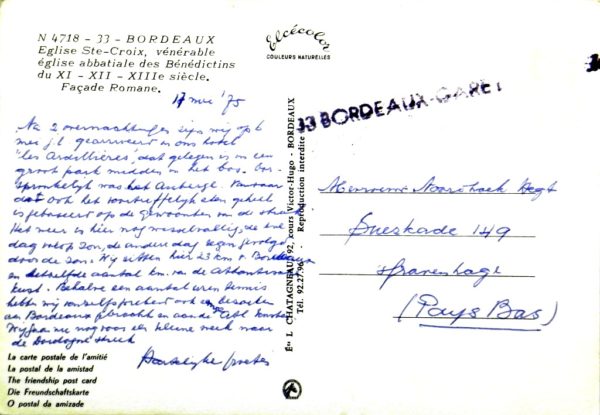 N 4718 - 33 - BORDEAUX
Eglise Ste-Croix, vénérable
église abbatiale des Bénédictins
du XI - XII - XIIIe siècle.
Façade Romane.
Elcécolor
COULEURS NATURELLES
17 mei '75
33 BORDEAUX-GARE
Na 2 overnachtingen zijn wij op 6
mei j.l. gearriveert in ons hotel
"les Ardillières", dat gelegen is in een
groot park midden in het bos. Oor-
spronkelijk was het Auberge. Vandaar
dat ook het voortreffelijk eten geheel
is gebaseerd op de gewoonten van de streek
Het weer is hier nog wisselvallig, de ene
dag volop zon, de andere dag regen gevolgd
door de zon. Wij zitten hier 23 km v. Bordeaux
en hetzelfde aantal km. van de Atlantische
kust. Behalve een aantal uren tennis
hebben wij vanzelfsprekend ook een bezoek
aan Bordeaux gebracht en aan de kust
Wij gaan nu nog voor een kleine week naar
de Dordogne streek
Hartelijke groeten
Éts L. CHATAGNEAU, 92, cours Victor-Hugo - BORDEAUX
Tél. 92.27.96 - Reproduction interdite
Mevrouw
Sueskade 149
's Gravenhage
(Pays Bas)
La carte postale de l'amitié
La postal de la amistad
The friendship post card
Die Freundschaftskarte
O postal da amizade